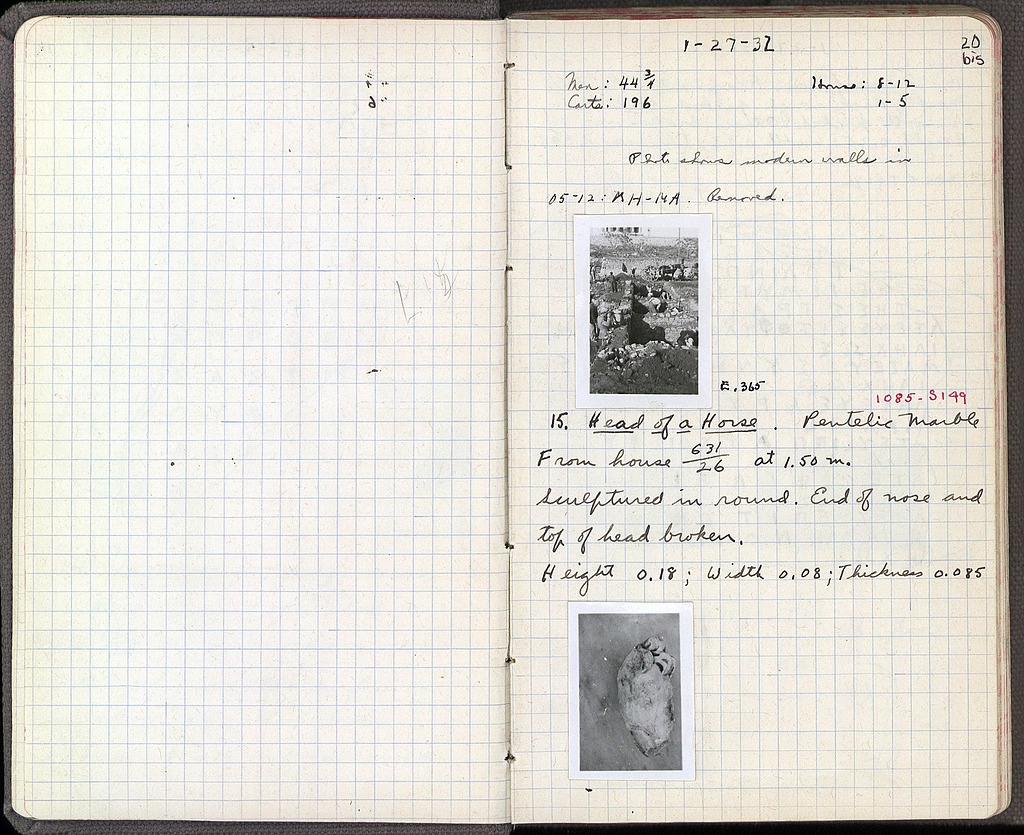 1-27-32
20
bis
Men: 44 3/4
Hours: 8-12
Carts: 196
1-5
Photo shows modern walls in
05-12: KH-MA. Removed.
E.365
1085-S149
15. Head of a Horse. Pentelic Marble
From house 631/26 at 1.50 m.
Sculptured in round. End of nose and
top of head broken.
Height 0.18; Width 0.08; Thickness 0.085